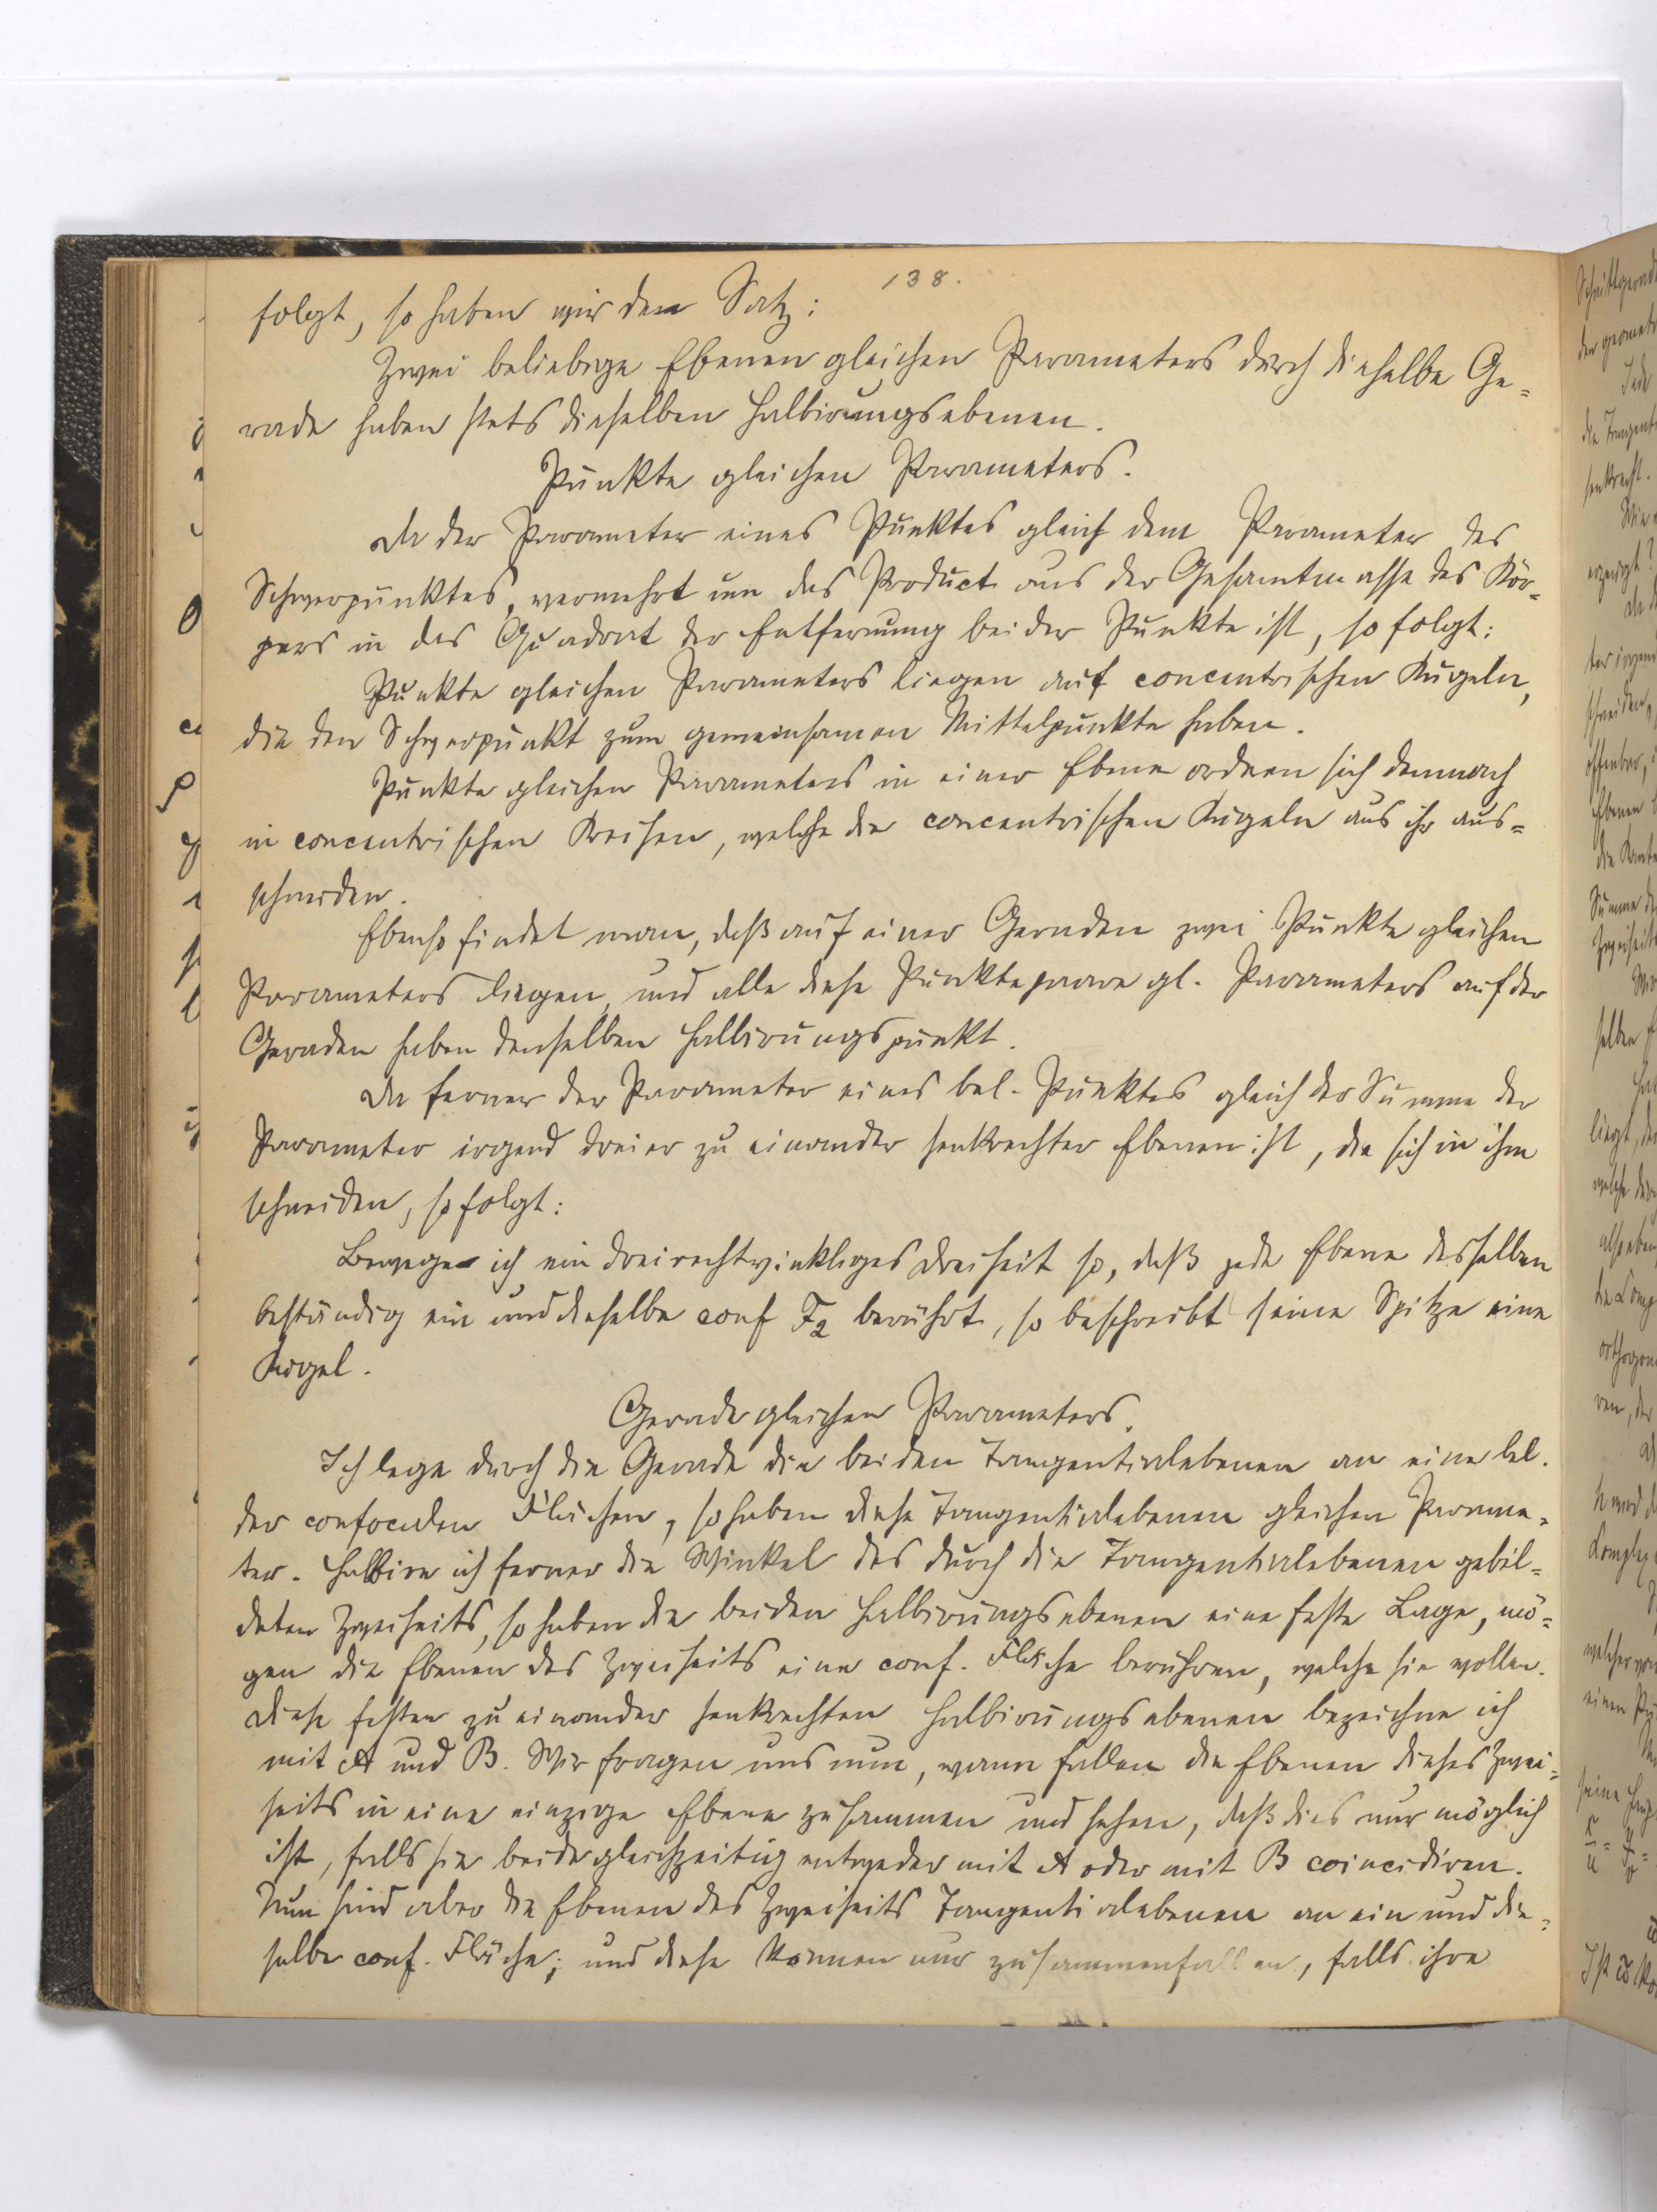 138.
folgt, so haben wir den Satz:
Zwei beliebige Ebenen gleichen Parameters durch dieselbe Ge=
rade haben stets dieselben Halbirungsebenen.
Punkte gleichen Parameters.
Da der Parameter eines Punktes gleich dem Parameter des
Schwerpunktes, vermehrt um das Product aus der Gesamtmasse des Kör=
pers in das Quadrat der Entfernung beider Punkte ist, so folgt:
Punkte gleichen Parameters liegen auf concentrischen Kugeln,
die den Schwerpunkt zum gemeinsamen Mittelpunkte haben.
Punkte gleichen Parameters in einer Ebene ordnen sich demnach
in concentrischen Kreisen, welche die concentrischen Kugeln aus ihr aus=
schneiden.
Ebenso findet man, daß auf einer Geraden zwei Punkte gleichen
Parameters liegen, und alle diese Punktepaare gl. Parameters auf der
Geraden haben denselben Halbirungspunkt.
Da ferner der Parameter eines bel. Punktes gleich der Summe der
Parameter irgend dreier zu einander senkrechter Ebenen ist, die sich in ihm
schneiden, so folgt:
Bewege ich ein dreirechtwinkliges Dreiseit so, daß jede Ebene desselben
beständig ein und dieselbe conf F2 berührt, so beschreibt seine Spitze eine
Kugel.
Gerade gleichen Parameters.
Ich lege durch die Gerade die beiden Tangentialebenen an eine bel.
der confocalen Flächen, so haben diese Tangentialebenen gleichen Parame=
ter. Halbire ich ferner die Winkel des durch die Tangentialebenen gebil=
deten Zweiseits, so haben die beiden Halbirungsebenen eine feste Lage, mö=
gen die Ebenen des Zweiseits eine conf. Fläche berühren, welche sie wollen.
Diese festen zu einander senkrechten Halbirungsebenen bezeichne ich
mit A und B. Wir fragen uns nun, wann fallen die Ebenen dieses Zwei=
seits in eine einzige Ebene zusammen und sehen, daß dies nur möglich
ist, falls sie beide gleichzeitig entweder mit A oder mit B coincidiren.
Nun sind aber die Ebenen des Zweiseits Tangentialebenen an ein und die=
selbe conf. Fläche; und diese können nur zusammenfallen, falls ihre